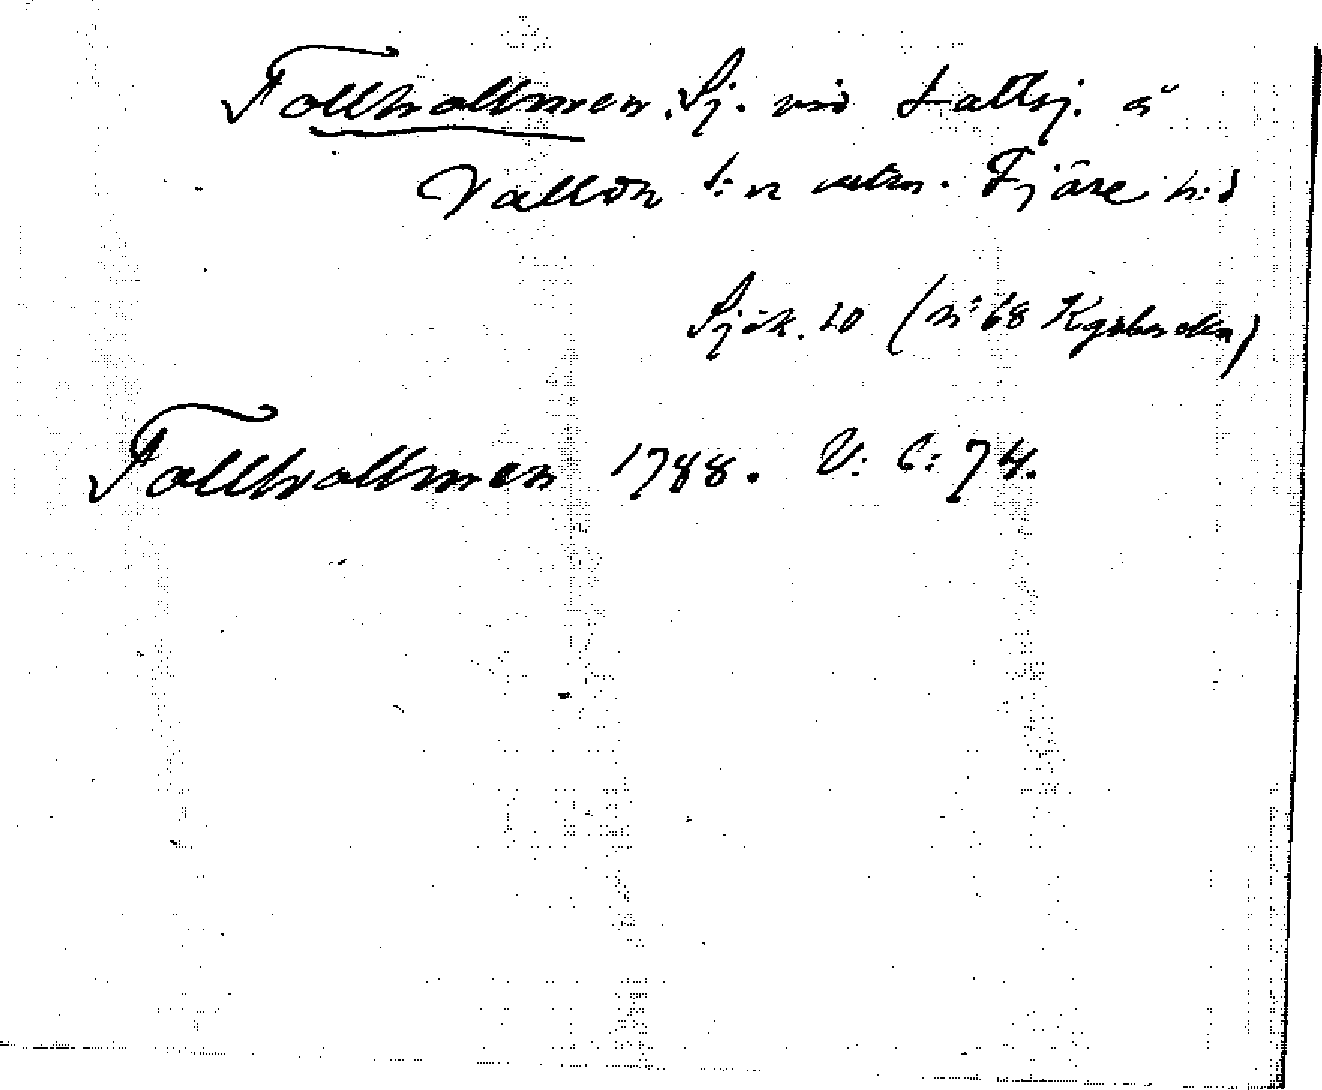 Tallholmen. Sj. vid Lallsj. å
Vallön l: n utkn. Fjäre h:d
Sjök. 10 (n: 68 Kgsbacka)
Tallholmen 1788. V: C: 74.